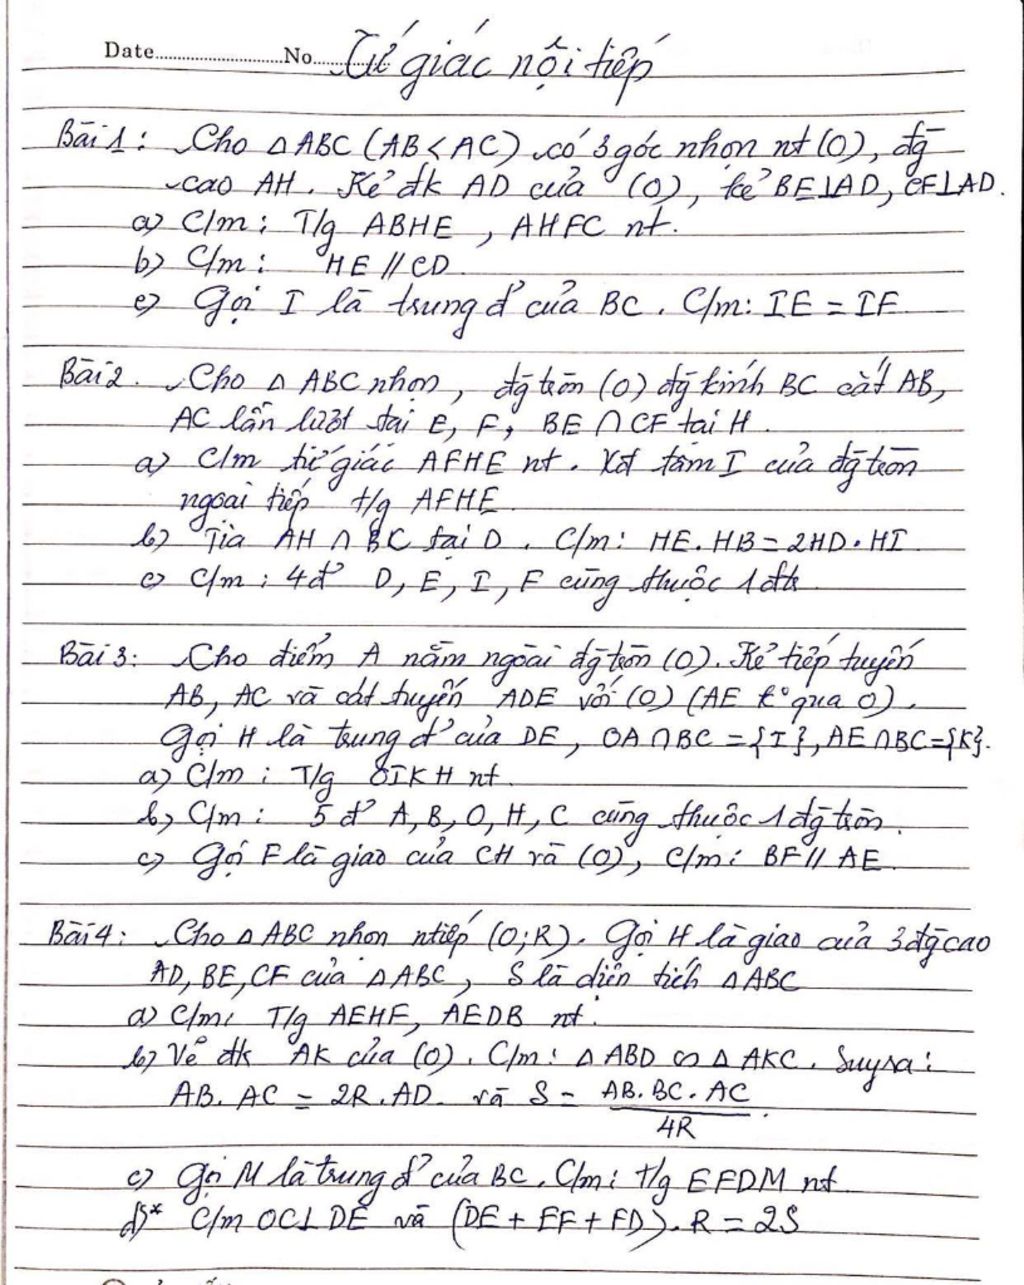 Date............................No............
Tứ giác nội tiếp
Bài 1: Cho △ABC (AB < AC) có 3 góc nhọn nt (O), đg
cao AH. Kẻ đk AD của (O), kẻ BE⊥AD, CF⊥AD.
a) C/m: T/g ABHE, AHFC nt.
b) C/m: HE // CD
c) Gọi I là trung đ' của BC. C/m: IE = IF
Bài 2. Cho △ ABC nhọn, đg tròn (O) đg kính BC cắt AB,
AC lần lượt tại E, F, BE ∩ CF tại H.
a) C/m tứ giác AFHE nt. Xđ tâm I của đg tròn
ngoại tiếp t/g AFHE
b) Tia AH ∩ BC tại D. C/m: HE. HB = 2HD. HI
c) C/m: 4 đ' D, E, I, F cùng thuộc 1 đtr
Bài 3: Cho điểm A nằm ngoài đg tròn (O). Kẻ tiếp tuyến
AB, AC và cát tuyến ADE với (O) (AE k° qua O).
Gọi H là trung đ' của DE, OA ∩ BC = {I}, AE ∩ BC = {K}.
a) C/m: T/g OIKH nt
b) C/m: 5 đ' A, B, O, H, C cùng thuộc 1 đg tròn.
c) Gọi F là giao của CH và (O), C/m: BF // AE.
Bài 4: Cho △ABC nhọn ntiếp (O;R). Gọi H là giao của 3 đg cao
AD, BE, CF của △ABC, S là diện tích △ABC
a) C/m: T/g AEHF, AEDB nt.
b) Vẽ đk AK của (O). C/m: △ ABD ∽ △ AKC. Suy ra:
AB. AC = 2R. AD và S = AB. BC. AC
4R
c) Gọi M là trung đ' của BC. C/m: T/g EFDM nt
d)* C/m OC⊥DE và (DE + EF + FD). R = 2S